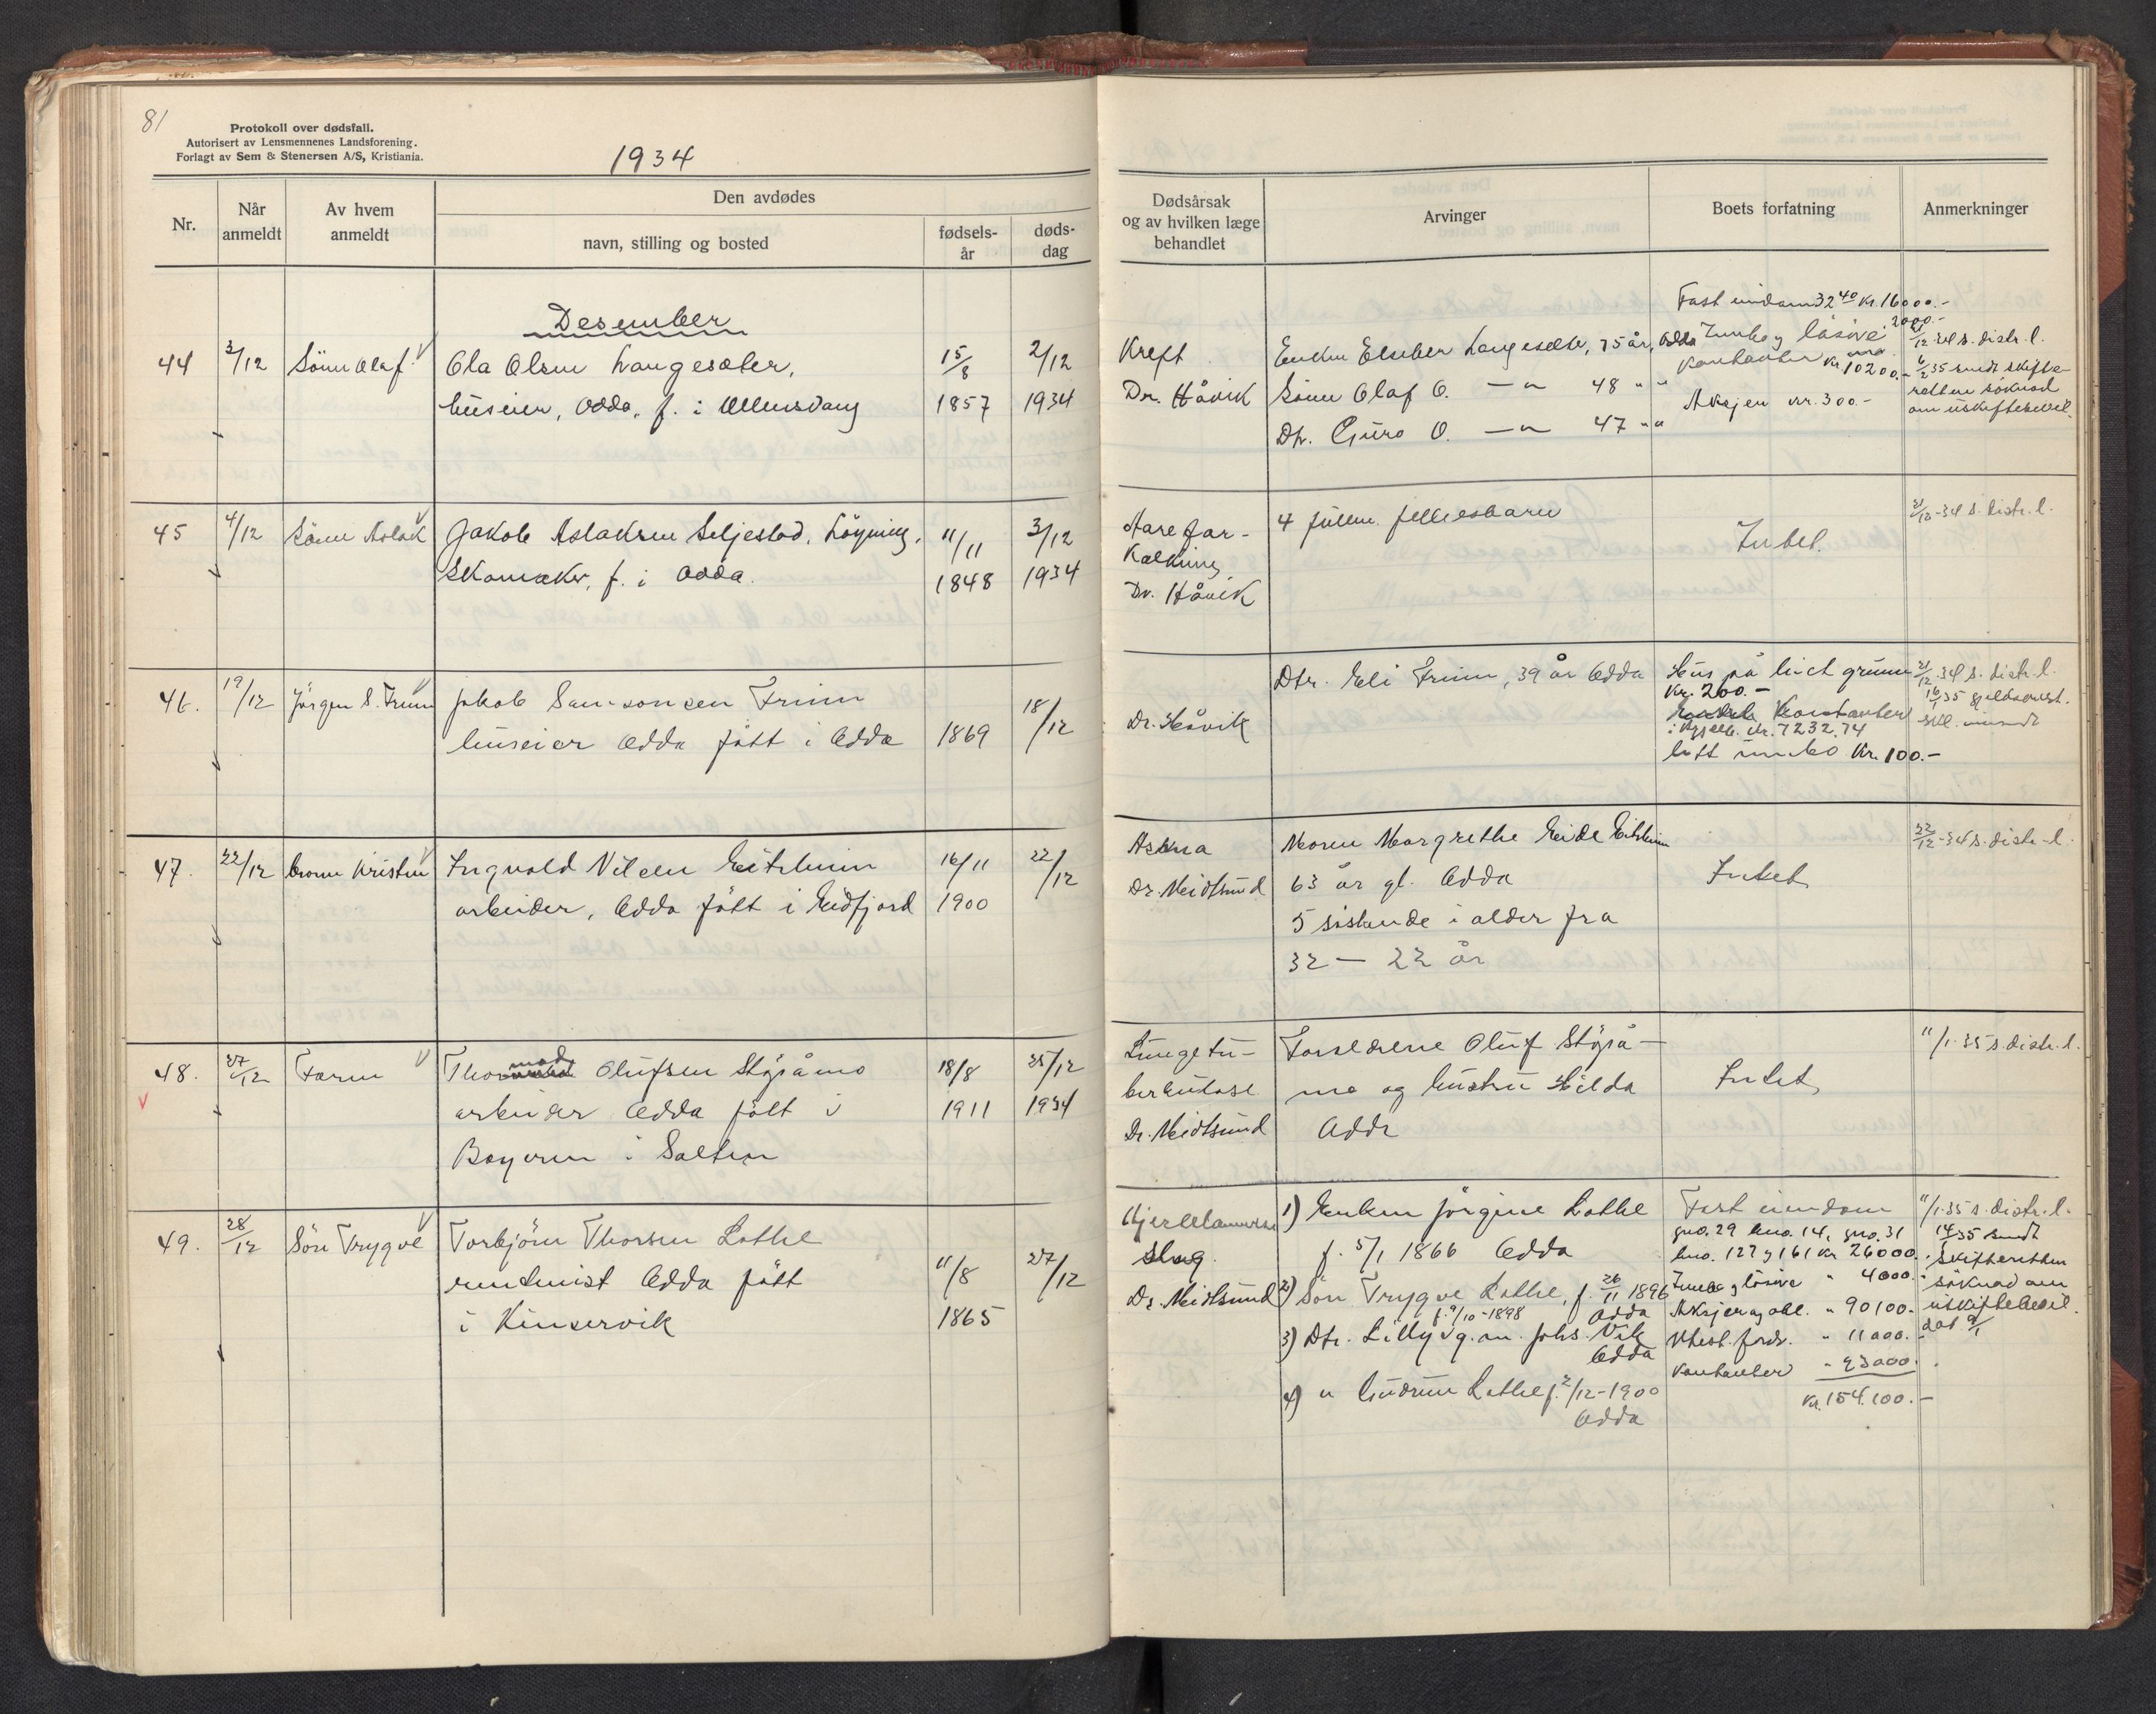 81
Protokoll over dødsfall.
Autorisert av Lensmennenes Landsforening.
Forlagt av Sem & Stenersen A/S, Kristiania.
1934
Nr.
Når anmeldt
Av hvem anmeldt
Den avdødes
navn, stilling og bosted
fødselsår
dødsdag
Dødsårsak og av hvilken læge behandlet
Arvinger
Boets forfatning
Anmerkninger
Desember
44 3/12 Sönn Olaf Ola Olsen Langesæter, 15/8 2/12
huseier, Odda, f. i Ullensvang 1857 1934
Kreft
Dr. Håvik
Enken Elseber Langesæter, 75 år, Odda
Sönn Olaf O. — " 48 " "
Dtr. Guro O. — " 47 " "
Fast eiendom 32 40 Kr. 16000.-
Innbo og lösöre 2000.-
Kontanter kr. 10200.-
Aksjer kr. 300.-
21/12-34 s. distr. l.
6/2 35 sendt skifte-
retten söknad
om uskiftebevil.
45 4/12 Sönn Aslak Jakob Aslaksen Seljestad, Löyning, 11/11 3/12
Skomaker, f. i Odda. 1848 1934
Aarefor-
kalkning
Dr. Håvik
4 fullm. fellesbarn
Intet.
21/12-34 s. distr. l.
46. 19/12 Jörgen S. Freim Jakob Samsonsen Freim 18/12
huseier Odda fött i Odda 1869
Dr. Håvik
Dtr. Eli Freim, 39 år Odda
Hus på leiet grunn
Kr. 200.-
Kontanter
kr. 7232,74
innbo Kr. 100.-
21/12-34 s. distr. l.
16/1 35
47. 22/12 broren Kristen Ingvald Nilsen Eitrheim 16/11 22/12
arbeider, Odda fött i Eidfjord 1900
Astma
Dr. Meidtsund
Moren Margrethe Eide Eitrheim
63 år gl. Odda
5 söskende i alder fra
32 — 22 år
Intet
22/12-34 s. distr. l.
48. 27/12 Faren Thormod Olufsen Störåmo 18/8 25/12
arbeider Odda fött i 1911 1934
i Salten
Lungetu-
berkulose
Dr. Meidtsund
Foreldrene Oluf Störå-
mo og hustru Hilda
Odda
Intet
11/1-35 s. distr. l.
49. 28/12 Sön Trygve Torbjörn Thorsen Lothe
rentenist Odda fött 11/8 27/12
i Kinservik 1865
Hjernehammer
slag.
Dr. Meidtsund
1) Enken Jörgine Lothe
f. 5/1 1866 Odda
2) Sön Trygve Lothe, f. 26/11 1896
Odda
f. 9/10-1898
3) Dtr. Lilly g. m. Johs. Vik
Odda
4) " Gudrun Lothe f. 2/12-1900
Odda
Fast eiendom
gno. 29 bno. 14, gno. 31
bno. 127 og 161 kr 26000.
Innbo og lösöre " 4000.-
Aksjer og obl. " 90100.-
Utest. fordr. " 11000.-
Kontanter " 23000.-
Kr. 154.100.-
11/1-35 s. distr. l.
14/1 35 sendt
skifteretten
söknad om
uskiftebevil.
dat 9/1